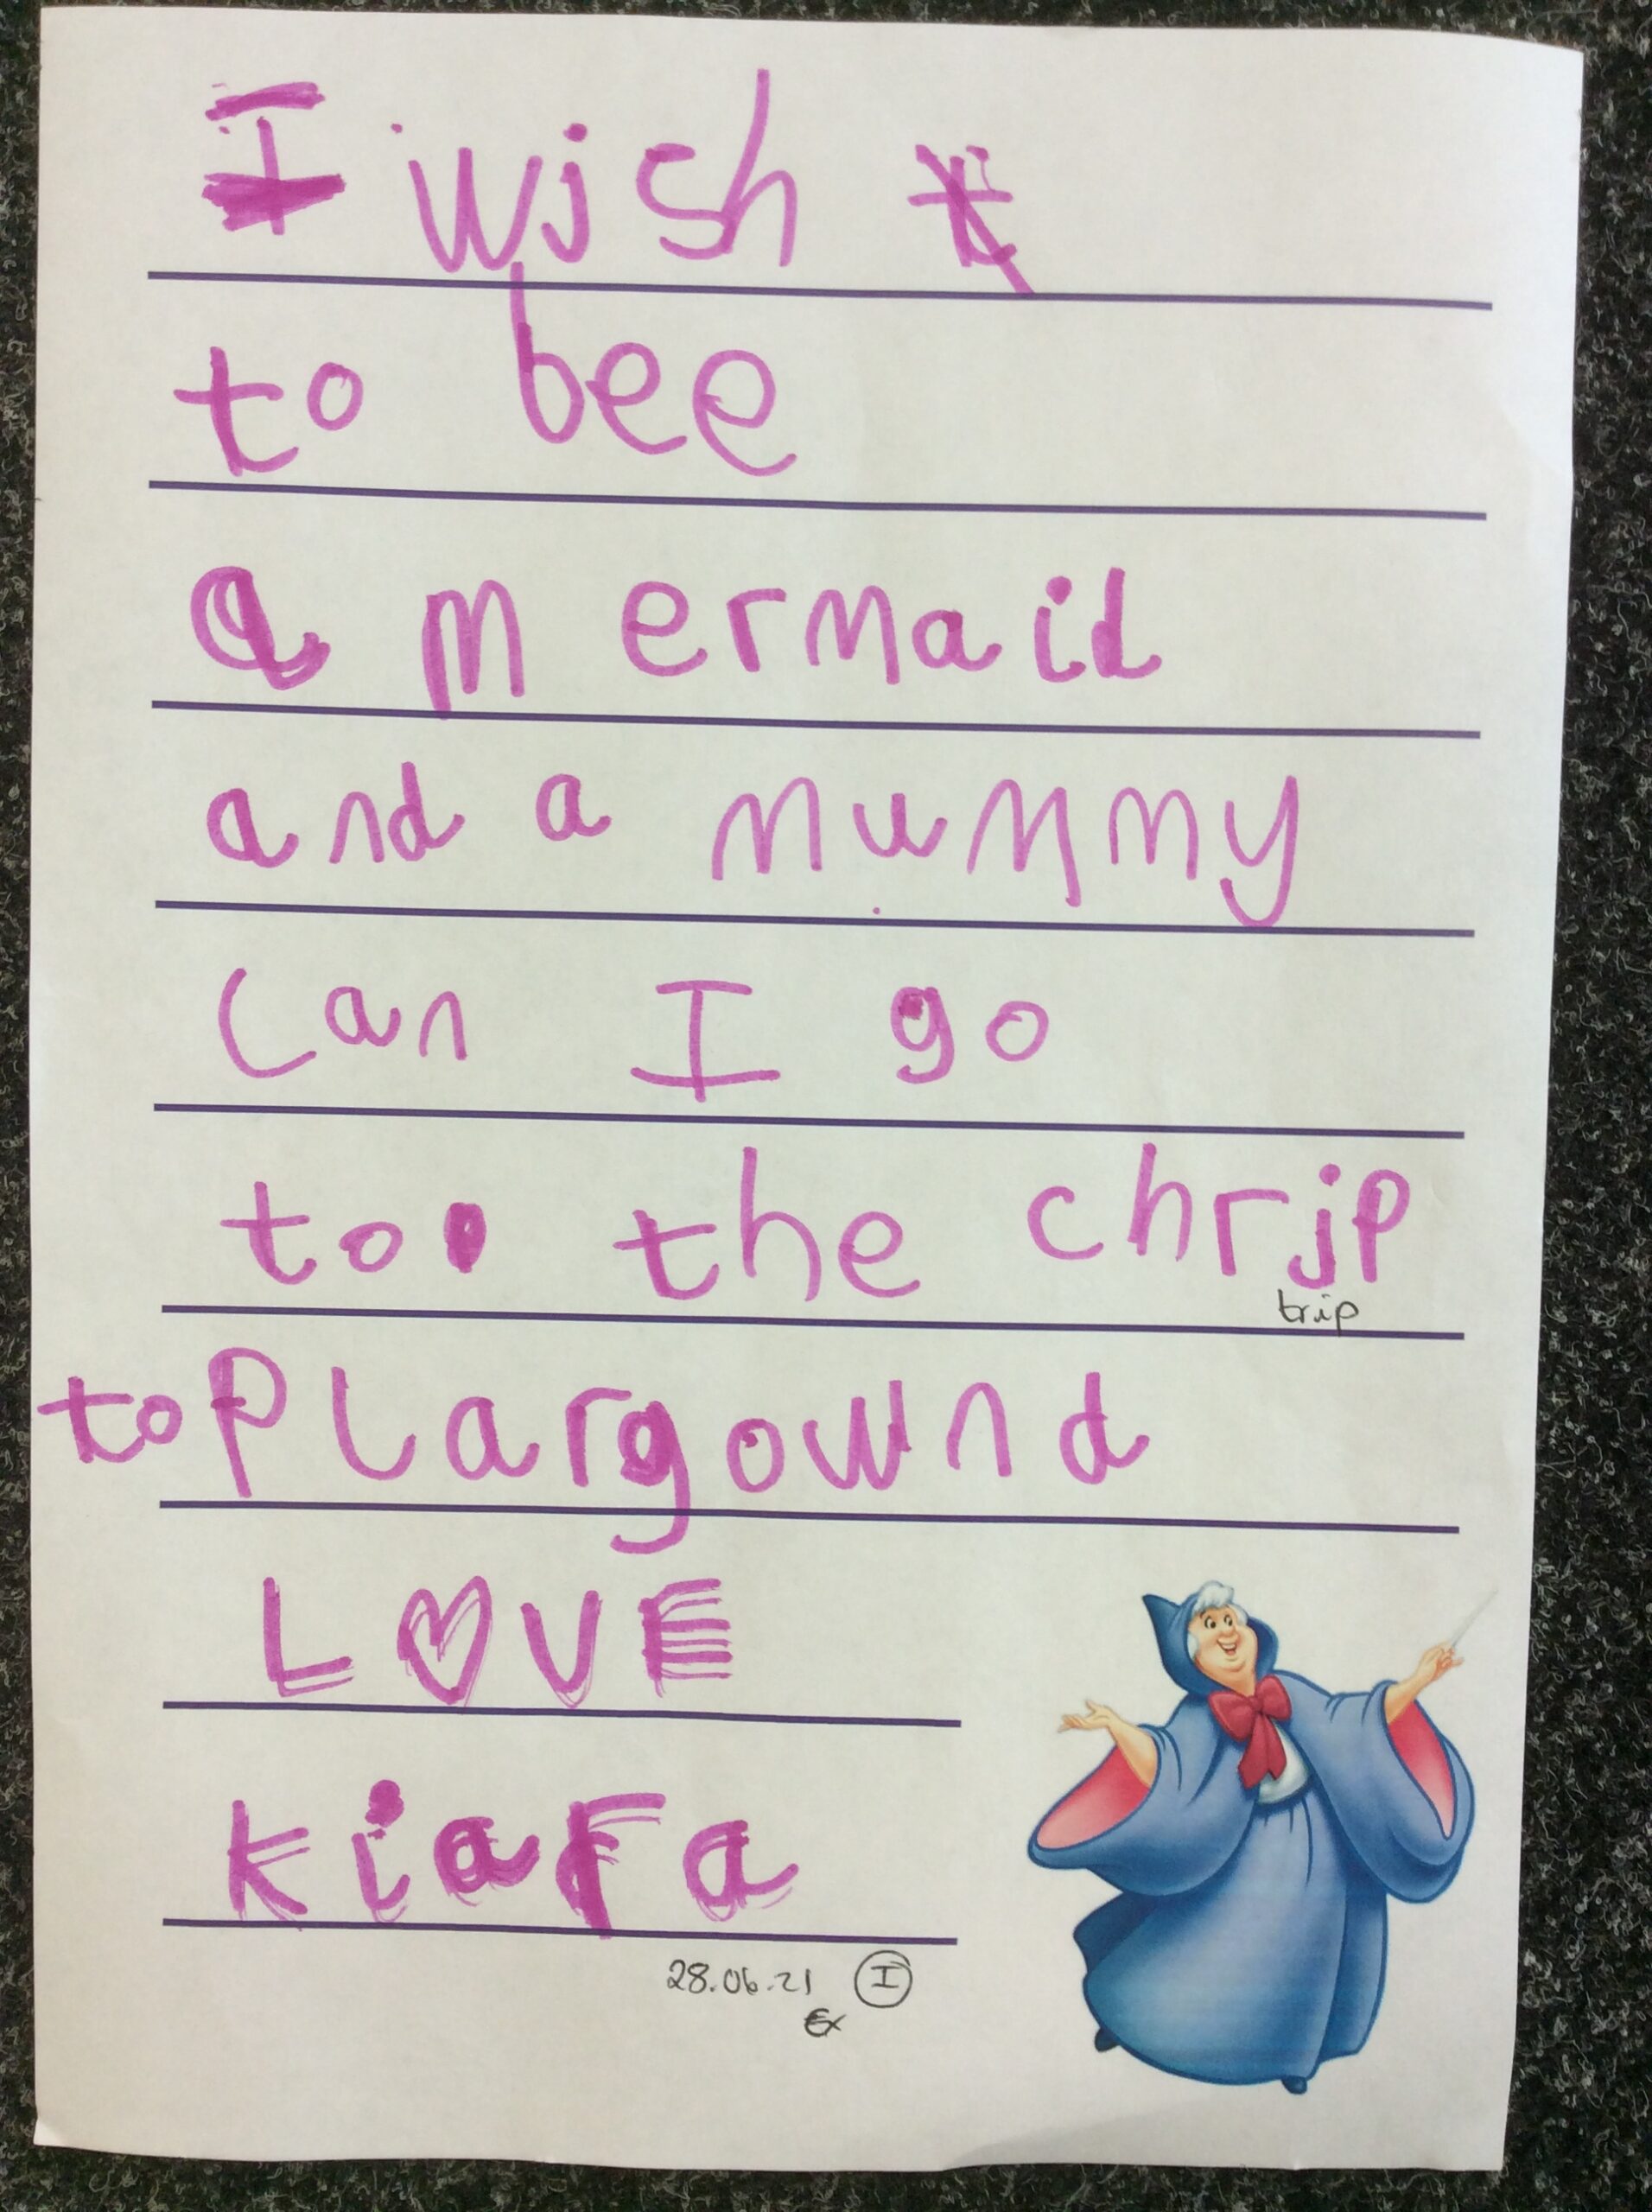 I wish
to bee
a mermaid
and a mummy
can I go
to the chrip
trip
to plargownd
LOVE
kiara
28.06.21 I
Ex